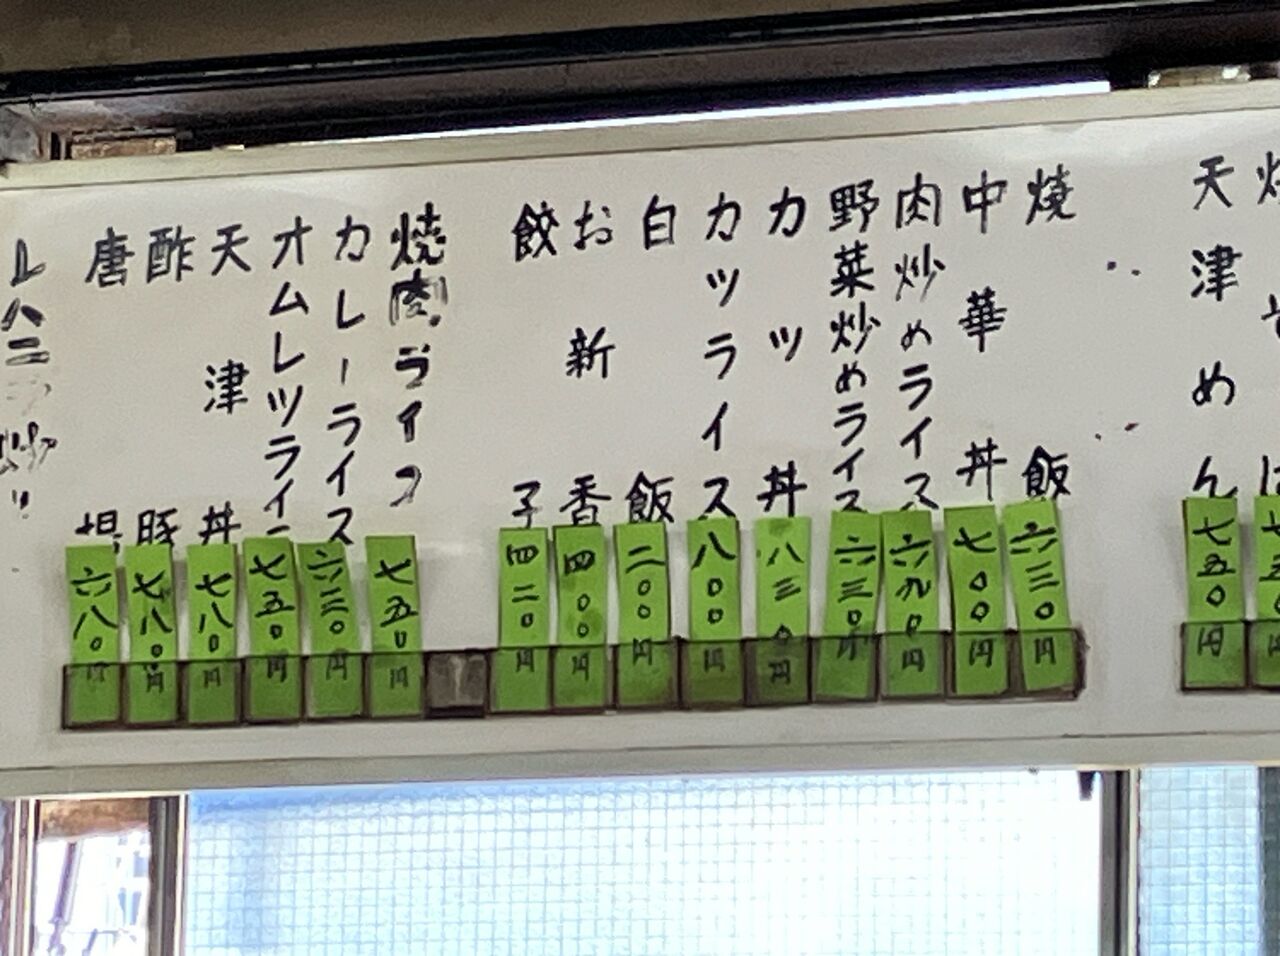 天津めん 七五〇円
焼飯 六三〇円
中華丼 七〇〇円
肉炒めライス 六九〇円
野菜炒めライス 六三〇円
カツ丼 八三〇円
カツライス 八〇〇円
白飯 二〇〇円
お新香 四〇〇円
餃子 四二〇円
焼肉ライス 七五〇円
カレーライス 六三〇円
オムレツライス 七五〇円
天津丼 七八〇円
酢豚 七八〇円
唐揚 六八〇円
レバニラ炒